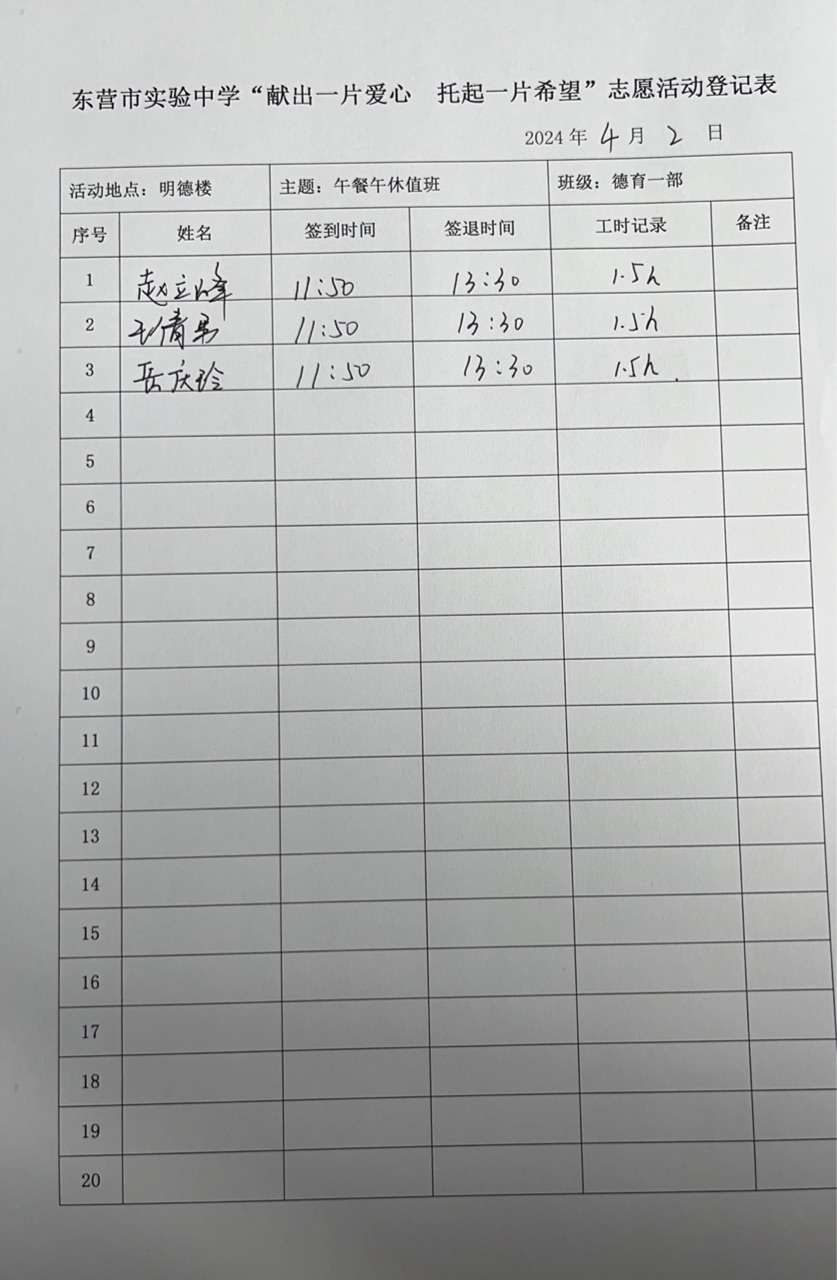 东营市实验中学“献出一片爱心 托起一片希望”志愿活动登记表
2024 年 4 月 2 日
活动地点：明德楼 主题：午餐午休值班 班级：德育一部
序号 姓名 签到时间 签退时间 工时记录 备注
1 赵立峰 11:50 13:30 1.5h
2 青男 11:50 13:30 1.5h
3 岳庆玲 11:50 13:30 1.5h
4
5
6
7
8
9
10
11
12
13
14
15
16
17
18
19
20